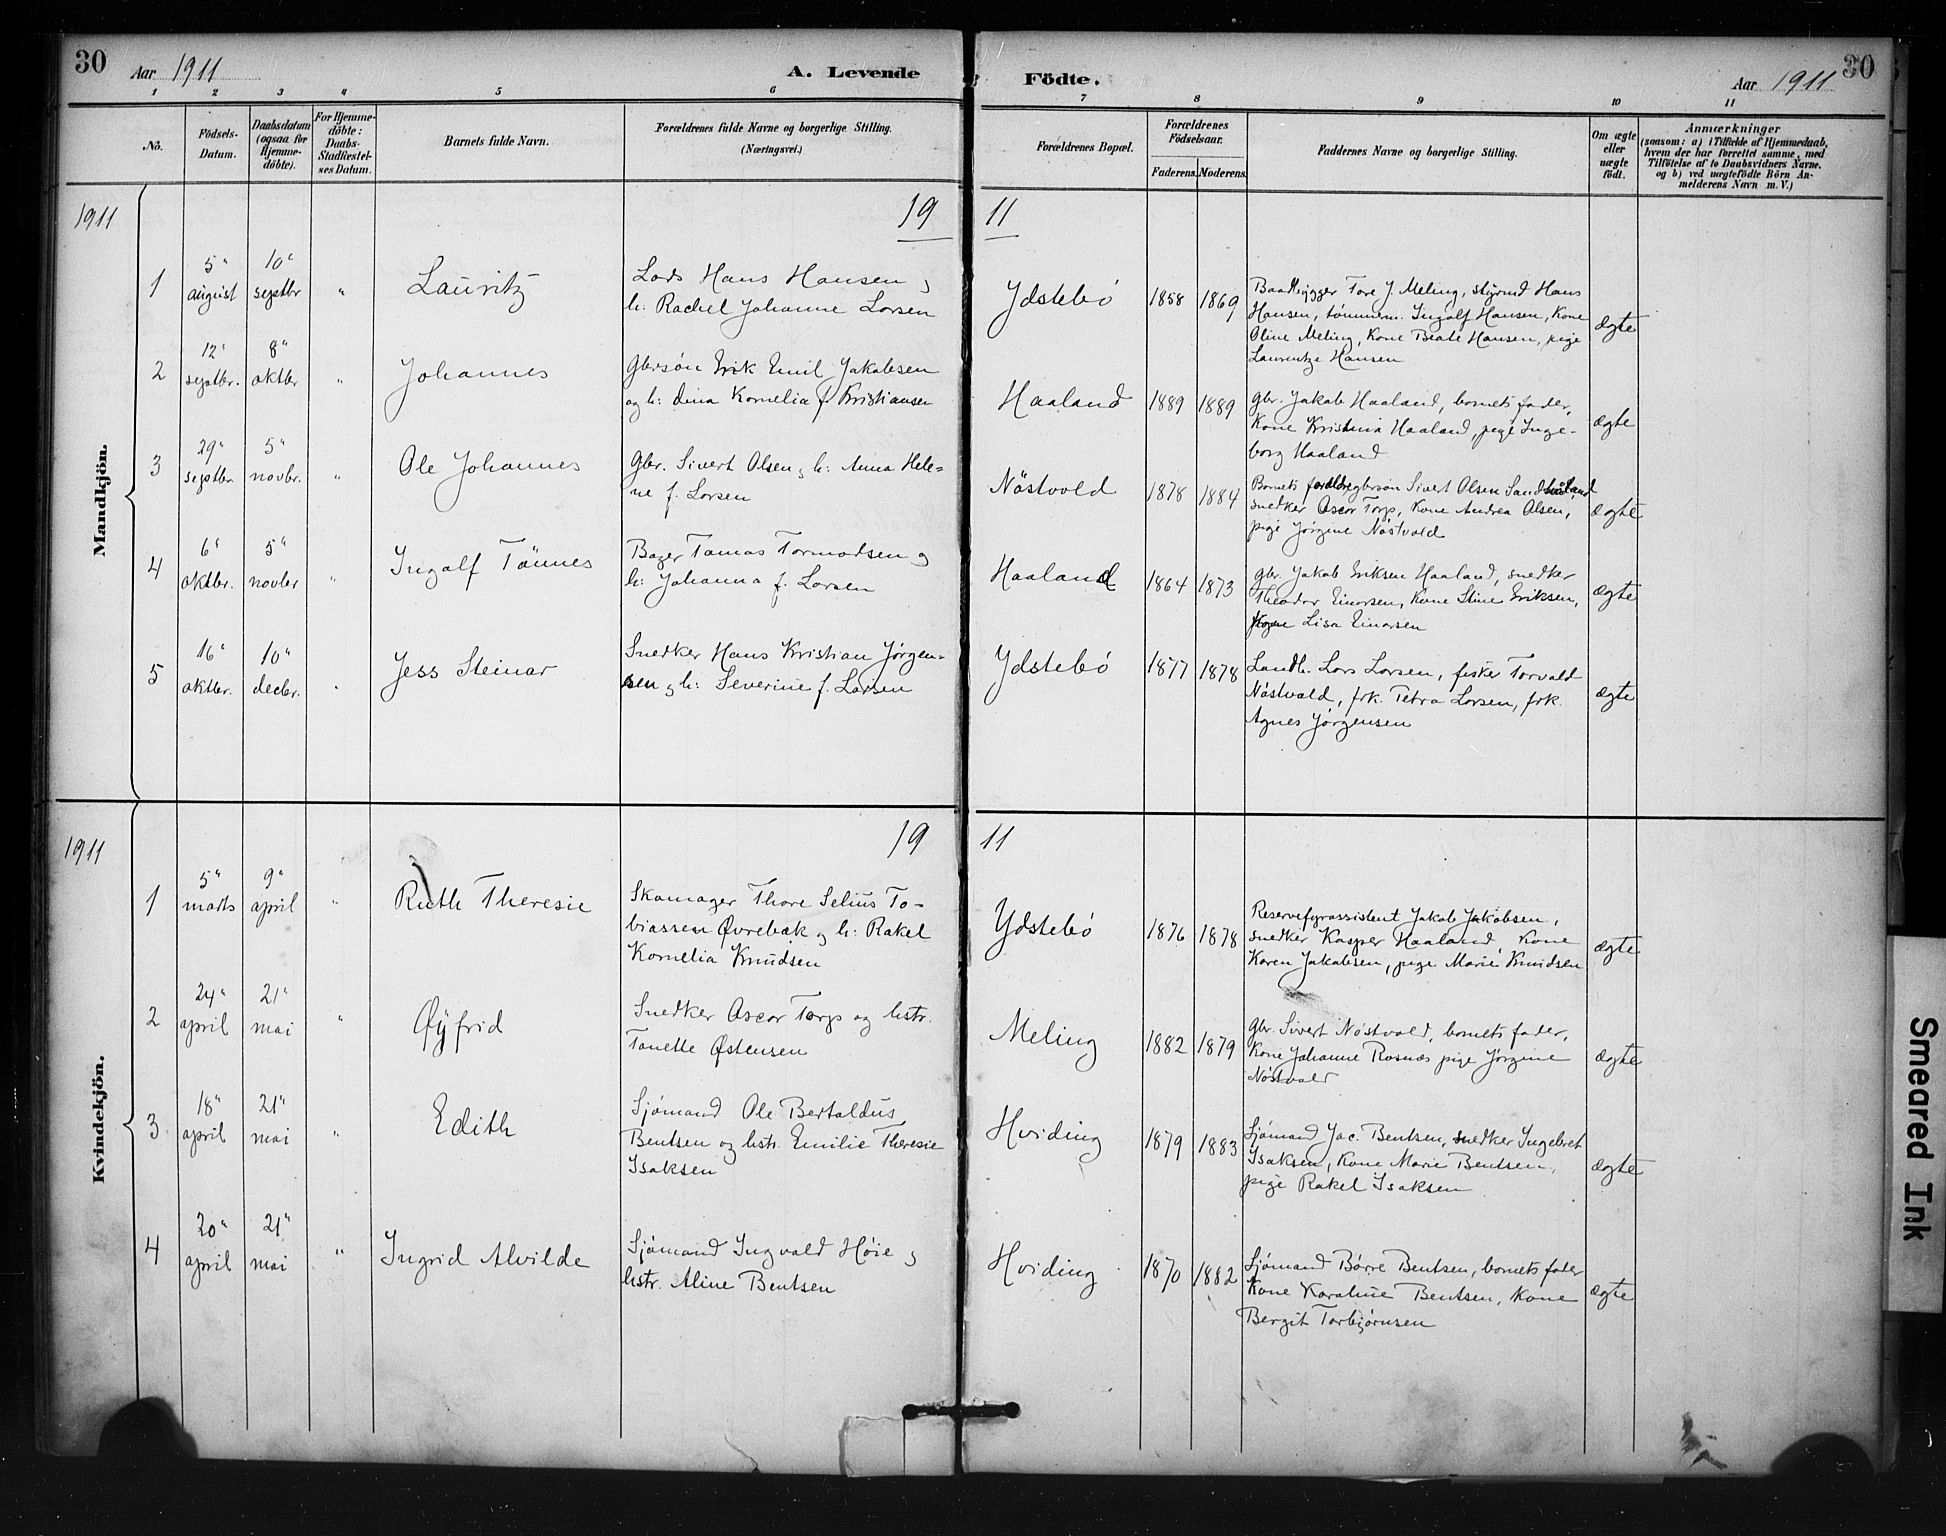 30
Aar 1911
A. Levende
Födte.
Aar 1911
30
1 2 3 4 5 6 7 8 9 10 11
No.
Födsels-
Datum.
Daabsdatum
(ogsaa for
Hjemme-
döbte).
For Hjemme-
döbte:
Daabs-
Stadfæstel-
ses Datum.
Barnets fulde Navn.
Forældrenes fulde Navne og borgerlige Stilling.
(Næringsvei.)
Forældrenes Bopæl.
Forældrenes
Födselsaar.
Faderens.
Moderens.
Faddernes Navne og borgerlige Stilling.
Om ægte
eller
uægte
födt.
Anmærkninger
(saasom: a) i Tilfælde af Hjemmedaab,
hvem der har forrettet samme, med
Tilföielse af to Daabsvidners Navne.
og b) ved uægtefödte Börn An-
melderens Navn m. V.)
1911
19
11
Mandkjön.
1
5"
august
10"
septbr
"
Lauritz
Lods Hans Hansen og
h: Rachel Johanne Larsen
Ydstebö
1858
1869
Baadbygger Tore J. Meling, styrmd Hans
Hansen, tömmerm. Ingolf Hansen, Kone
Oline Meling, Kone Beate Hansen, pige
Laurentze Hansen
ægte
2
12"
septbr.
8"
oktbr
"
Johannes
Gbrsøn Erik Emil Jakobsen
og h: Dina Kornelia f. Kristiansen
Haaland
1889
1889
Gbr. Jakob Haaland, barnets fader,
Kone Kristina Haaland, pige Inge-
borg Haaland
ægte
3
29"
septbr.
5"
novbr.
"
Ole Johannes
Gbr. Sivert Olsen og h: Anna Hele=
ne f. Larsen
Nöstvold
1878
1884
Barnets forældre gbrsøn Sivert Olsen
snedker Oscar Torp, Kone Andrea Olsen,
pige Jørgine Nöstvold
ægte
4
6"
oktbr.
5"
novbr
"
Ingolf Tönnes
Bager Tomas Tormodsen og
h: Johanna f. Larsen
Haaland
1864
1873
Gbr. Jakob Eriksen Haaland, snedker
Theodor Einarsen, Kone Stine Eriksen,
Lisa Einarsen
ægte
5
16"
oktbr.
10"
decbr.
"
Jess Steinar
Snedker Hans Kristian Jørgen=
sen og h: Severine f. Larsen
Ydstebö
1877
1878
Landh. Lars Larsen, fisker Torvald
Nöstvold, frk. Petra Larsen, frk.
Agnes Jørgensen
ægte
1911
19
11
Kvindekjön.
1
5"
marts
9"
april
"
Ruth Theresie
Skomager Thore Selius To-
biassen Øvrebøk og h: Rakel
Kornelia Knudsen
Ydstebö
1876
1878
Reservefyrassistent Jakob Jakobsen,
snedker Kasper Haaland, Kone
Karen Jakobsen, pige Marie Knudsen
ægte
2
24"
april
21"
mai
"
Øyfrid
Snedker Oscar Torp og hstr.
Tonette Østensen
Meling
1882
1879
Gbr. Sivert Nöstvold, barnets fader,
Kone Johanne Rosnæs pige Jörgine
Nöstvold
ægte
3
18"
april
21"
mai
"
Edith
Sjömand Ole Bertaldus
Bentsen og hstr. Emilie Theresie
Isaksen
Hviding
1879
1883
Sjömand Jac. Bentsen, snedker Ingebret
Isaksen, Kone Marie Bentsen,
pige Rakel Isaksen
ægte
4
20"
april
21"
mai
"
Ingrid Alvilde
Sjömand Ingvald Høie og
hstr. Aline Bentsen
Hviding
1870
1882
Sjömand Børre Bentsen, barnets fader
Kone Karoline Bentsen, Kone
Bergit Torbjørnsen
ægte
Smeared Ink